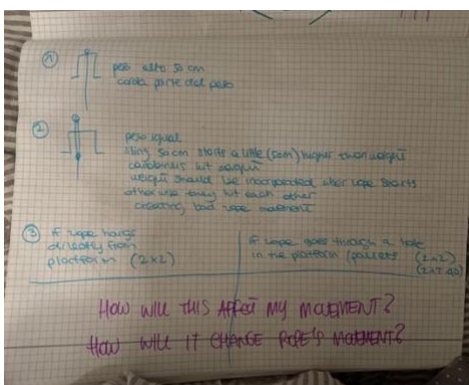 ①
peso alto 50 cm
corda parte dal peso
②
peso uguale
sling 50 cm starts a little (5cm) higher than weight
carabiners hit weight
weight should be incorporated where rope starts
otherwise they hit each other
creating bad rope movement
③
if rope hangs
directly from
platform (2x2)
if rope goes through a hole
in the platform / parcels (2x2)
HOW WILL THIS AFFECT MY MOVEMENT?
HOW WILL IT CHANGE ROPE'S MOVEMENT?